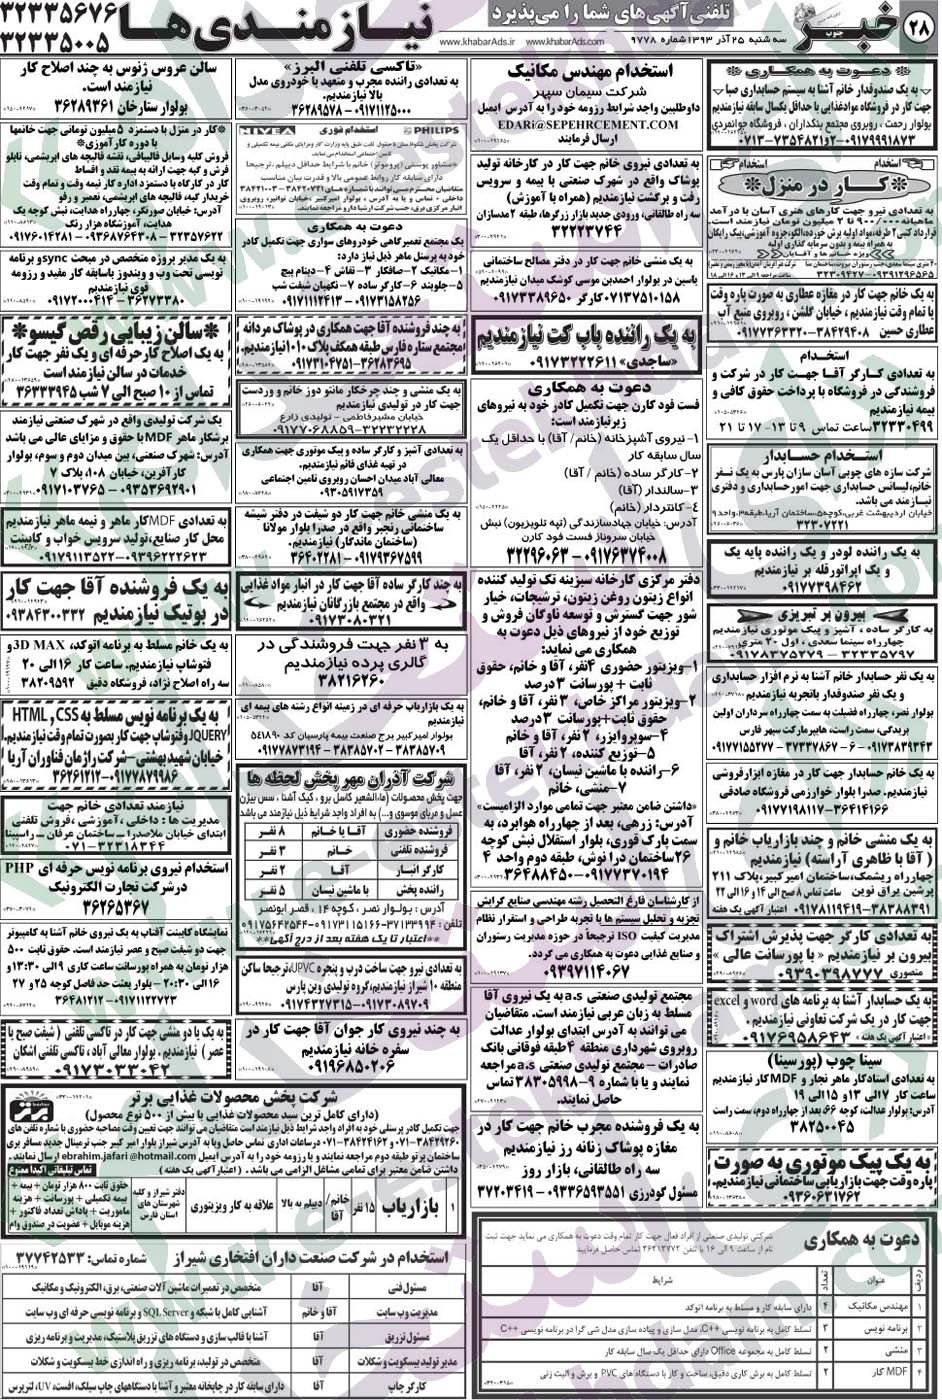 ۲۸
خبر
جنوب
سه شنبه ۲۵ آذر ۱۳۹۳ شماره ۹۷۷۸
تلفنی آگهی های شما را می‌پذیرد
www.khabarAds.ir - www.khabarAds.com
نیازمندی‌ها
۳۲۳۳۵۶۷۶
۳۲۳۳۵۰۰۵
دعوت به همکاری
به یک صندوقدار خانم آشنا به سیستم حسابداری صبا
جهت کار در فروشگاه موادغذایی با حداقل یکسال سابقه نیازمندیم
بولوار رحمت ، روبروی مجتمع پنکداران ، فروشگاه جوانمردی
۰۷۱۳-۷۳۵۴۸۲۱۲-۰۹۱۷۹۹۹۱۸۷۳
استخدام
استخدام
کار در منزل
به تعدادی نیرو جهت کارهای هنری آسان با درآمد
ماهیانه ۹۰۰/۰۰۰ تا ۲ میلیون تومانی نیازمند است.
به همراه بیمه و بدون سرمایه گذاری اولیه
ویژه خانم ها و آقایان
۳۲۳۰۹۴۲۷-۰۹۳۹۱۲۹۶۵۶۵
به یک خانم جهت کار در مغازه عطاری به صورت پاره وقت
یا تمام وقت نیازمندیم ، خیابان گلشن ، روبروی منبع آب
عطاری حسین ۳۸۴۲۹۴۰۸-۰۹۱۷۷۳۶۳۳۲۰
استخدام
به تعدادی کارگر آقا جهت کار در شرکت و
فروشندگی در فروشگاه با پرداخت حقوق کافی و
بیمه نیازمندیم
۳۲۳۳۰۴۹۹ ساعت تماس ۹ تا ۱۳ - ۱۷ تا ۲۱
استخدام حسابدار
شرکت سازه های چوبی آسان سازان پارس به یک نفر
خانم،لیسانس حسابداری جهت امور حسابداری و دفتری
نیازمند می باشد.
خیابان اردیبهشت غربی،کوچه۵،ساختمان آریا،طبقه۳،واحد۹
۳۲۳۰۷۲۲۱
به یک راننده لودر و یک راننده پایه یک
و یک اپراتور قله بر نیازمندیم
۰۹۱۷۷۳۹۸۴۶۲
بیرون بر تبریزی
به کارگر ساده ، آشپز و پیک موتوری نیازمندیم
همراه سینما سعدی ، اول ۲۰ متری
۰۹۱۷۸۳۷۵۲۷۹-۳۲۳۳۵۷۹۷
به یک نفر حسابدار خانم آشنا به نرم افزار حسابداری
و یک نفر صندوقدار باتجربه نیازمندیم
بولوار نصر، چهارراه فضیلت به سمت چهارراه سرداران اولین
بریدگی، سمت راست، هایپر مارکت سپهر فارس
۰۹۱۷۷۱۵۵۲۷۷ - ۳۷۳۳۷۸۶۷-۶ - ۰۹۱۷۳۸۳۹۳۴۳
به یک خانم حسابدار جهت کار در مغازه ابزار فروشی
نیازمندیم. صدرا بلوار خوارزمی فروشگاه صادقی
۰۹۱۷۷۱۹۸۱۱۷-۳۶۴۱۴۱۶۶
به یک منشی خانم و چند بازاریاب خانم و
( آقا با ظاهری آراسته) نیازمندیم
چهارراه ریشمک، ساختمان امیر کبیر، پلاک ۲۱۱
پرشین براق نوین - ساعت تماس ۸ صبح الی ۱۴ و ۱۶ الی ۲۲
۰۹۱۷۸۱۱۹۴۱۹-۳۸۳۸۸۳۹۱ اعتبار آگهی یک هفته
به تعدادی کارگر جهت پذیرش اشتراک
بیرون بر نیازمندیم « با پورسانت عالی »
۰۹۳۹۰۳۹۸۷۷۷ منصوری
به یک حسابدار آشنا به برنامه های word و excel
جهت کار در یک شرکت تعاونی نیازمندیم .
۰۹۱۷۶۹۵۸۶۴۳ اعتبار آگهی یک هفته
سینا چوب (پورسینا)
به تعدادی استادکار ماهر نجار و MDF کار نیازمندیم
ساعت کار ۷ الی ۱۳ و ۱۵ الی ۱۹
آدرس: بولوار عدالت، کوچه ۶۶ بعد از چهارراه دوم، سمت راست
۳۸۲۵۰۰۴۵
به یک پیک موتوری به صورت
پاره وقت جهت بازاریابی ساختمانی نیازمندیم.
۰۹۳۶۰۶۳۱۷۶۲
استخدام مهندس مکانیک
شرکت سیمان سپهر
داوطلبین واجد شرایط رزومه خود را به آدرس ایمیل
EDARi@SEPEHRCEMENT.COM
ارسال فرمایند
به تعدادی نیروی خانم جهت کار در کارخانه تولید
پوشاک واقع در شهرک صنعتی با بیمه و سرویس
رفت و برگشت نیازمندیم (همراه با آموزش)
سه راه طالقانی، ورودی جدید بازار زرگرها، طبقه ۲ مدسازان
۳۲۲۲۳۷۴۴
به یک منشی خانم جهت کار در دفتر مصالح ساختمانی
یاسین در بولوار احمد بن موسی کوشک میدان نیازمندیم
۰۷۱۳۷۵۱۰۱۵۸ کارگر ۰۹۱۷۳۳۸۹۶۵۰
به یک راننده باب کت نیازمندیم
«ساجدی» ۰۹۱۷۳۲۲۲۶۱۱
دعوت به همکاری
فست فود کارن جهت تکمیل کادر خود به نیروهای
زیر نیازمند است:
۱- نیروی آشپزخانه (خانم/ آقا) با حداقل یک
سال سابقه کار
۲-کارگر ساده (خانم / آقا)
۳-سالندار (آقا)
۴- کانتردار (خانم)
آدرس: خیابان جهادسازندگی (تپه تلویزیون) نبش
خیابان سروناز فست فود کارن
۳۲۲۹۶۰۶۳ - ۰۹۱۷۶۳۷۴۰۰۸
دفتر مرکزی کارخانه سبزینه تک تولید کننده
انواع زیتون روغن زیتون، ترشیجات، خیار
شور جهت گسترش و توسعه ناوگان فروش و
توزیع خود از نیروهای ذیل دعوت به
همکاری می نماید:
۱-ویزیتور حضوری ۴نفر، آقا و خانم، حقوق
ثابت + پورسانت ۳درصد
۲-ویزیتور مراکز خاص، ۲نفر، آقا و خانم،
حقوق ثابت+پورسانت ۳درصد
۴-سوپروایزر، ۲نفر، آقا و خانم
۵-توزیع کننده، ۲نفر، آقا
۶-راننده با ماشین نیسان، ۲نفر، آقا
۷-منشی، خانم
«داشتن ضامن معتبر جهت تمامی موارد الزامیست»
آدرس: زرهی، بعد از چهارراه هوابرد، به
سمت پارک قوری، بلوار استقلال نبش کوچه
۲۶ساختمان درا نوش، طبقه دوم واحد ۴
۳۶۴۸۸۴۵۰ -۰۹۱۷۷۳۷۰۱۹۴
از کارشناسان فارغ التحصیل رشته مهندسی صنایع گرایش
تجزیه و تحلیل سیستم ها با تجربه طراحی و استقرار نظام
مدیریت کیفیت ISO ترجیحاً در حوزه مدیریت رستوران
و صنایع غذایی دعوت به همکاری می گردد.
۰۹۳۹۷۱۱۴۰۶۷
مجتمع تولیدی صنعتی a.s به یک نیروی آقا
مسلط به زبان عربی نیازمند است. متقاضیان
می توانند به آدرس ابتدای بولوار عدالت
روبروی شهرداری منطقه ۴ طبقه فوقانی بانک
صادرات – مجتمع تولیدی صنعتی a.s مراجعه
نمایند و یا با شماره ۹-۳۸۳۰۵۹۹۸ تماس
حاصل نمایند.
به یک فروشنده مجرب خانم جهت کار در
مغازه پوشاک زنانه رز نیازمندیم
سه راه طالقانی، بازار روز
مسئول گودرزی ۰۹۳۳۶۵۹۳۵۵۱ - ۳۷۲۰۳۴۱۹
دعوت به همکاری
شرکتی تولیدی صنعتی از افراد فعال جهت کار تمام وقت دعوت به همکاری می نماید جهت ثبت
نام از ساعت ۹ الی ۱۶ با تلفن ۳۶۲۱۳۷۷۲ تماس حاصل فرمایید.
ردیف عنوان تعداد شرایط
۱ مهندس مکانیک ۴ دارای سابقه کار و مسلط به برنامه اتوکد
۲ برنامه نویس ۳ تسلط کامل به برنامه نویسی C++، مدل سازی و پیاده سازی مدل شی گرا در برنامه نویسی C++
۳ منشی ۲ تسلط کامل به مجموعه Office دارای حداقل یک سال سابقه کار
۴ MDF کار ۲ تسلط کامل به برش کاری دقیق، ساخت و کار با دستگاه های PVC و برش و الیت زنی
«تاکسی تلفنی البرز»
به تعدادی راننده مجرب و متعهد با خودروی مدل
بالا نیازمندیم.
۳۶۲۸۹۵۷۸ - ۰۹۱۷۱۱۲۵۰۰۰
PHILIPS
استخدام فوری
NIVEA
دعوت به همکاری
یک مجتمع تعمیرگاهی خودروهای سواری جهت تکمیل کادر
خود به پرسنل ماهر ذیل نیاز دارد:
۱- مکانیک ۲- صافکار ۳- نقاش ۴- دینام پیچ
۵- جلوبند ۶- کارگر ساده ۷- نگهبان شیفت شب
۰۹۱۷۱۱۱۲۴۱۳ - ۰۹۱۷۳۱۵۸۲۵۶
به چند فروشنده آقا جهت همکاری در پوشاک مردانه
مجتمع ستاره فارس طبقه همکف پلاک ۱۰۱۰ نیازمندیم.
۰۹۱۷۳۱۰۴۷۵۱-۳۶۲۸۳۶۹۵
به یک منشی و چند چرخکار مانتو دوز خانم و وردست
جهت کار در تولیدی نیازمندیم
خیابان مشیرفاطمی - تولیدی زارع
۰۹۱۷۷۰۶۸۸۵۹-۳۲۲۳۲۲۲۸
به تعدادی آشپز و کارگر ساده و پیک موتوری جهت همکاری
در تهیه غذای قائم نیازمندیم.
معالی آباد میدان احسان روبروی تامین اجتماعی
۰۹۳۰۵۹۱۷۳۵۹
به یک منشی خانم جهت کار دو شیفت در دفتر شیشه
ساختمانی رنجبر واقع در صدرا بلوار مولانا
(ساختمان ماندگار) نیازمندیم.
۳۶۴۰۲۲۸۱ - ۰۹۱۷۹۳۶۷۵۹۹
به چند کارگر ساده آقا جهت کار در انبار مواد غذایی
واقع در مجتمع بازرگانان نیازمندیم
۰۹۱۷۳۰۸۰۳۲۱
به ۳ نفر جهت فروشندگی در
گالری پرده نیازمندیم
۳۸۲۱۶۲۶۰
به یک بازاریاب حرفه ای در زمینه انواع رشته های بیمه ای
نیازمندیم
بولوار امیرکبیر برج صنعت بیمه پارسیان کد ۵۴۱۸۹۰
۰۹۱۷۷۸۷۳۱۹۴ - ۳۸۳۸۵۷۰۲ - ۳۸۳۸۵۷۰۹
شرکت آذران مهر پخش لحظه ها
جهت پخش محصولات (ماءالشعیر کاسل برو ، کیک آشنا ، سس بیژن
عسل و مربای موسوی و...) به افراد واجد شرایط ذیل نیازمند می باشد
فروشنده حضوری آقا یا خانم ۸ نفر
فروشنده تلفنی خانم ۳ نفر
کارگر انبار آقا ۲ نفر
راننده پخش با ماشین نیسان ۵ نفر
آدرس : بولوار نصر ، کوچه ۱۴ ، قصر ابونصر
تلفن : ۳۷۱۳۳۹۹۴-۰۹۱۷۳۱۱۵۱۶۶-۰۹۱۷۵۶۴۲۵۴۴
«اعتبار تا یک هفته بعد از درج آگهی»
به تعدادی نیرو جهت ساخت درب و پنجره UPVC، ترجیحا ساکن
منطقه ۱۰ شیراز نیازمندیم،گروه تولیدی وین پارس
۰۹۱۷۴۳۲۷۳۱۵-۰۹۱۷۳۰۸۹۷۰۹
به چند نیروی کار جوان آقا جهت کار در
سفره خانه نیازمندیم
۰۹۱۹۶۸۵۰۲۰۶
سالن عروس ژنوس به چند اصلاح کار
نیازمند است.
بولوار ستارخان ۳۶۲۸۹۳۶۱
*کار در منزل با دستمزد ۵ میلیون تومانی جهت خانمها
با دوره کارآموزی*
فروش کلیه وسایل قالیبافی، نقشه قالیچه های ابریشمی، تابلو
فرش و کبه جهت ارائه به بیمه نقد و اقساط
کار در کارگاه با دستمزد اداره کار نیمه وقت و تمام وقت
خریدار کبه، قالیچه های ابریشمی، تعمیر و رفو
آدرس: خیابان صورتگر، چهارراه هدایت، نبش کوچه یک
هدایت، آموزشگاه هزار رنگ
۳۲۳۵۷۶۲۲ - ۰۹۳۶۸۷۶۴۳۰۸ - ۰۹۱۷۶۰۱۴۲۸۱
به یک مدیر پروژه متخصص در مبحث sync و برنامه
نویسی تحت وب و ویندوز باسابقه کار مفید و رزومه
قوی نیازمندیم
۳۶۲۷۳۳۸۰ - ۰۹۱۷۲۰۰۰۴۱۴
سالن زیبایی رقص گیسو
به یک اصلاح کار حرفه ای و یک نفر جهت کار
خدمات در سالن نیازمند است
تماس از ۱۰ صبح الی ۷ شب ۳۶۳۳۳۹۴۵
یک شرکت تولیدی واقع در شهرک صنعتی نیازمند
برشکار ماهر MDF با حقوق و مزایای عالی می باشد
آدرس: شهرک صنعتی، بین میدان دوم و سوم، بولوار
کارآفرین، خیابان ۱۰۸، پلاک ۷
۰۹۱۷۱۰۳۷۶۵ - ۰۹۳۵۳۶۹۲۹۰۱
به تعدادی MDF کار ماهر و نیمه ماهر نیازمندیم
محل کار صنایع،تولید سرویس خواب و کابینت
۰۹۳۹۶۲۲۲۶۲۳-۰۹۱۷۹۱۱۳۵۲۲
به یک فروشنده آقا جهت کار
در بوتیک نیازمندیم ۰۹۳۸۴۳۰۰۳۳۲
به یک خانم مسلط به برنامه اتوکد، 3D MAX و
فتوشاپ نیازمندیم. ساعت کار ۱۶ الی ۲۰
سه راه اصلاح نژاد، فروشگاه دقیق ۳۸۲۰۹۵۹۲
به یک برنامه نویس مسلط به HTML , CSS
JQUERY و فتوشاپ جهت کار بصورت تمام وقت نیازمندیم.
خیابان شهید بهشتی - شرکت رازمان فناوران آریا
۳۶۲۶۱۲۱۲-۰۹۱۷۷۸۷۹۹۸۶
نیازمند تعدادی خانم جهت
مدیریت ها : داخلی ، آموزشی ، فروش تلفنی
ابتدای خیابان ملاصدرا - ساختمان عرفان - راسینا
۰۷۱-۳۲۳۱۸۳۴۴
استخدام نیروی برنامه نویس حرفه ای PHP
در شرکت تجارت الکترونیک
۳۶۲۶۵۳۶۷
نمایشگاه کابینت آفتاب به یک نیروی خانم آشنا به کامپیوتر
جهت دو شیفت صبح و عصر نیازمند است. حقوق ثابت ۵۰۰
هزار تومان به همراه پورسانت ساعت کاری ۹ الی ۱۳:۳۰ و
۱۶ الی ۲۰:۳۰ - بلوار بعثت حد فاصل کوچه ۲۵ و ۲۷
۳۶۴۸۱۲۱۲ - ۰۹۱۷۱۱۲۲۷۲۳
به یک یا دو منشی جهت کار در تاکسی تلفنی ( شیفت صبح یا
عصر ) نیازمندیم . بولوار معالی آباد ، تاکسی تلفنی اشکان
۰۹۱۷۳۰۳۳۰۴۲
شرکت پخش محصولات غذایی برتر
برتر
(دارای کامل ترین سبد محصولات غذایی با بیش از ۵۰۰ نوع محصول)
جهت تکمیل کادر پرسنلی خود به افراد واجد شرایط ذیل نیازمند است متقاضیان می توانند جهت تعیین وقت مصاحبه حضوری با شماره تلفن های
۰۷۱-۳۸۴۲۹۲۶۰ - ۰۷۱-۳۸۴۲۴۱۶۲ درساعات اداری تماس حاصل ویا به آدرس شیراز بلوار امیر کبیر جنب ترمینال جدید مسافر بری
ساختمان پرتو طبقه دوم مراجعه نمایند و یا رزومه خود را به آدرس ایمیل ebrahim.jafari@hotmail.com ارسال نمایند.
داشتن ضامن معتبر برای تمامی مشاغل الزامی می باشد . ( اعتبار آگهی یک هفته ) تماس تبلیغاتی اکیدا ممنوع
۱ بازاریاب ۱۵ نفر خانم/ آقا دیپلم به بالا علاقه به کار ویزیتوری دفتر شیراز و کلیه شهرستان های استان فارس
حقوق ثابت ۸۰۰ هزار تومان + بیمه + بیمه تکمیلی + پورسانت + هزینه ماموریت + پاداش تعداد فاکتور + هزینه موبایل + عضویت در صندوق وام
استخدام در شرکت صنعت داران افتخاری شیراز شماره تماس: ۳۷۷۴۲۵۳۳
مسئول فنی آقا متخصص در تعمیرات ماشین آلات صنعتی، برق، الکترونیک و مکانیک
مدیریت وب سایت آقا و خانم آشنایی کامل با شبکه و SQL Server و برنامه نویسی حرفه ای وب سایت
مسئول تزریق آقا آشنا با قالب سازی و دستگاه های تزریق پلاستیک، مدیریت و برنامه ریزی
مدیر تولید بیسکویت و شکلات آقا متخصص در تولید، برنامه ریزی و راه اندازی خط بیسکویت و شکلات
کارگر چاپ آقا دارای سابقه کار در چاپخانه معتبر و آشنا با دستگاههای چاپ سیلک، افست، UV، لترپرس